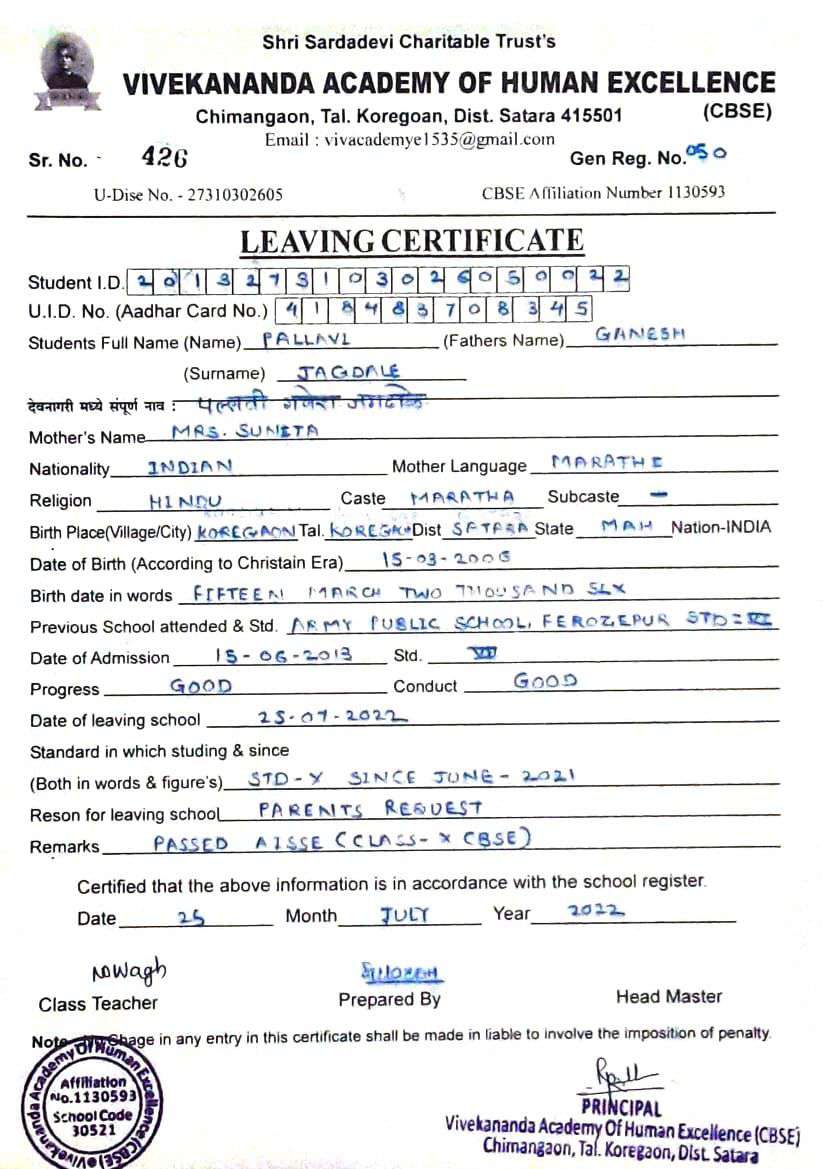 Shri Sardadevi Charitable Trust's
VIVEKANANDA ACADEMY OF HUMAN EXCELLENCE
(CBSE)
Chimangaon, Tal. Koregoan, Dist. Satara 415501
Email : vivacademye1535@gmail.com
Sr. No. - 426 Gen Reg. No. 050
U-Dise No. - 27310302605 CBSE Affiliation Number 1130593
LEAVING CERTIFICATE
Student I.D. 2013273103026050022
U.I.D. No. (Aadhar Card No.) 418483708345
Students Full Name (Name) PALLAVI (Fathers Name) GANESH
(Surname) JAGDALE
देवनागरी मध्ये संपूर्ण नाव : पल्लवी गणेश जगदाळे
Mother's Name MRS. SUNITA
Nationality INDIAN Mother Language MARATHI
Religion HINDU Caste MARATHA Subcaste -
Birth Place(Village/City) KOREGAON Tal. Dist SATARA State MAH Nation-INDIA
Date of Birth (According to Christain Era) 15-03-2006
Birth date in words FIFTEEN MARCH TWO THOUSAND SIX
Previous School attended & Std. ARMY PUBLIC SCHOOL, FEROZEPUR STD = VI
Date of Admission 15-06-2013 Std. VII
Progress GOOD Conduct GOOD
Date of leaving school 25-07-2022
Standard in which studing & since
(Both in words & figure's) STD-X SINCE JUNE-2021
Reson for leaving school PARENTS REQUEST
Remarks PASSED AISSE (CLASS-X CBSE)
Certified that the above information is in accordance with the school register.
Date 25 Month JULY Year 2022
Class Teacher Prepared By Head Master
Note No Chage in any entry in this certificate shall be made in liable to involve the imposition of penalty.
Vivekananda Academy Of Human Excellence (CBSE)
Affiliation
No.1130593
School Code
30521
PRINCIPAL
Vivekananda Academy Of Human Excellence (CBSE)
Chimangaon, Tal. Koregaon, Dist. Satara